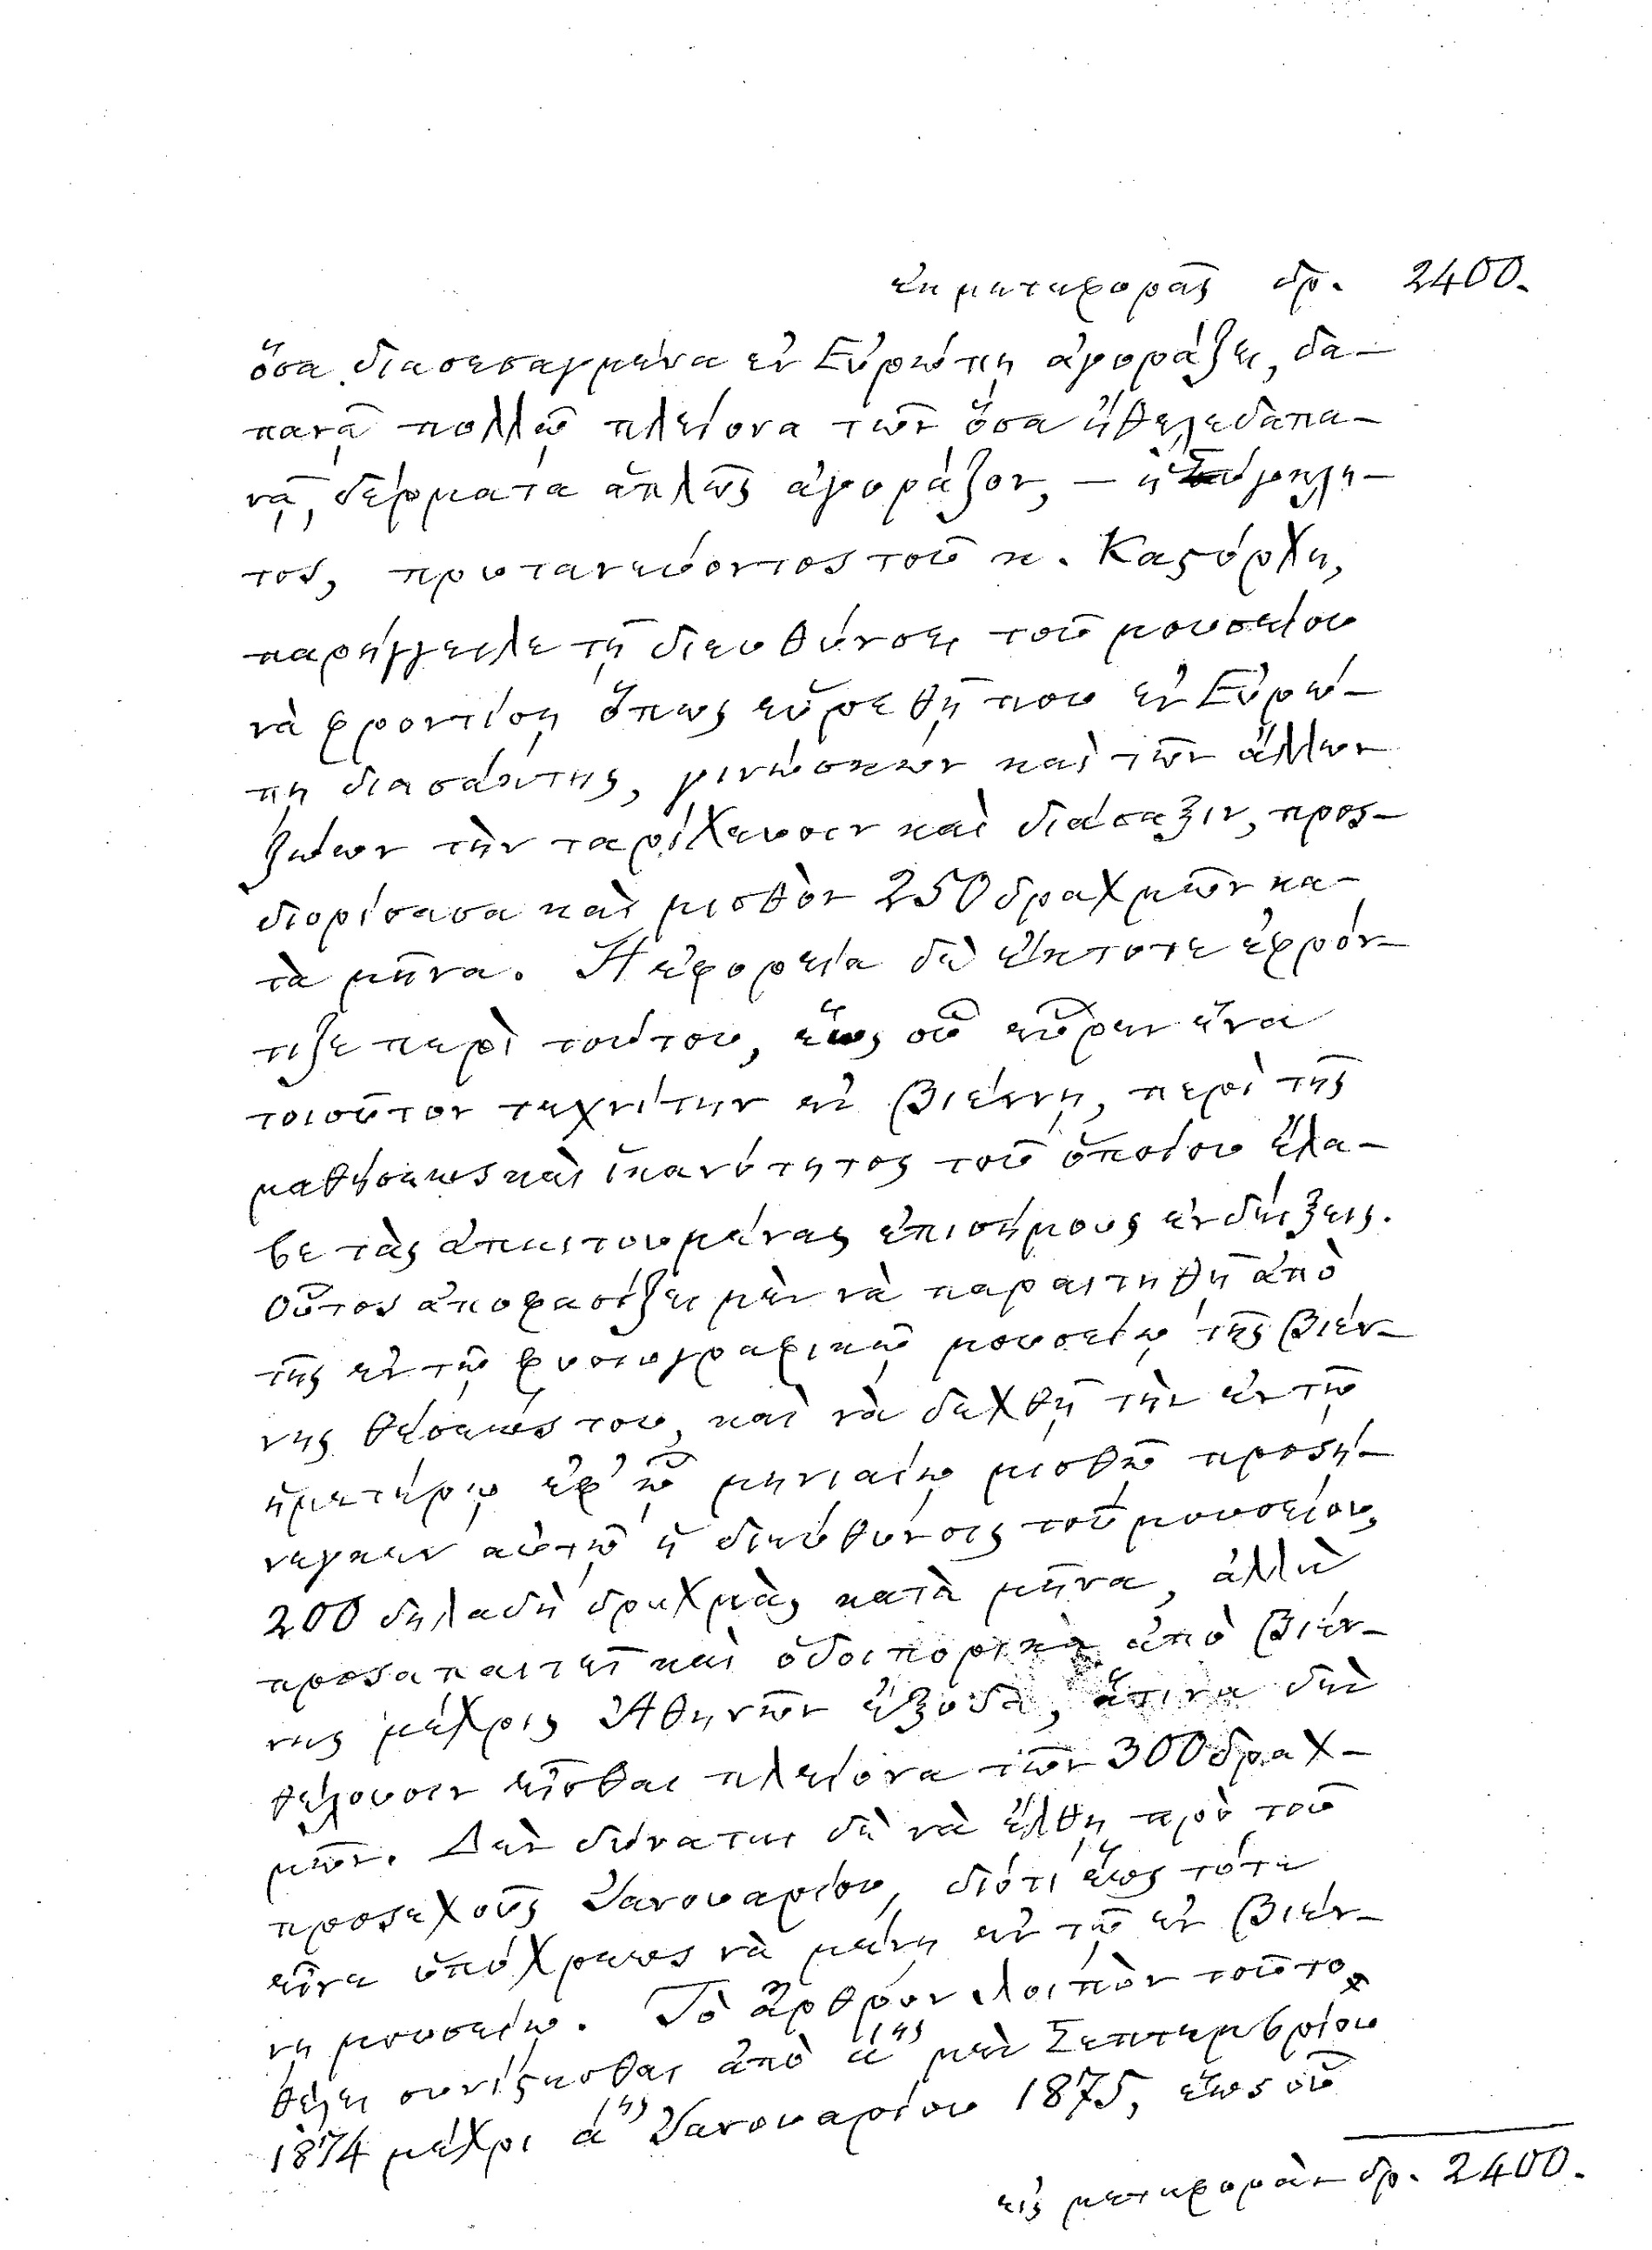 ἐκ μεταφορᾶς δρ. 2400.
ὅσα διασεσαγμένα ἐν Εὐρώπῃ ἀγοράζει, δα-
πανᾷ πολλῷ πλείονα τῶν ὅσα ἤθελε δαπα-
νᾷ, δέρματα ἁπλῶς ἀγοράζον, — ἡ Σύγκλη-
τος, πρυτανεύοντος τοῦ κ. Καστόρχη,
παρήγγειλε τῇ διευθύνσει τοῦ μουσείου
νὰ φροντίσῃ ὅπως εὑρεθῇ που ἐν Εὐρώ-
πῃ διασάκτης, γινώσκων καὶ τῶν ἄλλων
ζώων τὴν ταρίχευσιν καὶ διάσαξιν, προς-
διορίσασα καὶ μισθὸν 250 δραχμῶν κα-
τὰ μῆνα. Ἡ ἐφορεία δὲ ἔκτοτε ἐφρόν-
τιζε περὶ τούτου, ἕως οὗ εὗρεν ἕνα
τοιοῦτον τεχνίτην ἐν Βιέννῃ, περὶ τῆς
μαθήσεως καὶ ἱκανότητος τοῦ ὁποίου ἔλα-
βε τὰς ἀπαιτουμένας ἐπισήμους ἐνδείξεις.
Οὗτος ἀποφασίζει μὲν νὰ παραιτηθῇ ἀπὸ
τῆς ἐν τῷ φυσιογραφικῷ μουσείῳ τῆς Βιέν-
νης θέσεώς του, καὶ νὰ δεχθῇ τὴν ἐν τῷ
ἡμετέρῳ ἐφ' ᾧ μηνιαίῳ μισθῷ προσή-
νεγκεν αὐτῷ ἡ διεύθυνσις τοῦ μουσείου,
200 δηλαδὴ δραχμὰς κατὰ μῆνα, ἀλλὰ
προσαπαιτεῖ καὶ ὁδοιπορικὰ ἀπὸ Βιέν-
νης μέχρις Ἀθηνῶν ἔξοδα, ἅτινα δὲν
θέλουσιν εἶσθαι πλείονα τῶν 300 δραχ-
μῶν. Δὲν δύναται δὲ νὰ ἔλθῃ πρὸ τοῦ
προσεχοῦς Ἰανουαρίου, διότι ἕως τότε
εἶνε ὑπόχρεως νὰ μένῃ ἐν τῷ ἐν Βιέν-
νῃ μουσείῳ. Τὸ ἄρθρον λοιπὸν τοῦτο
θέλει συνίστασθαι ἀπὸ α'ης μὲν Σεπτεμβρίου
1874 μέχρι α'ης Ἰανουαρίου 1875, ἕως οὗ
εἰς μεταφορὰν δρ. 2400.